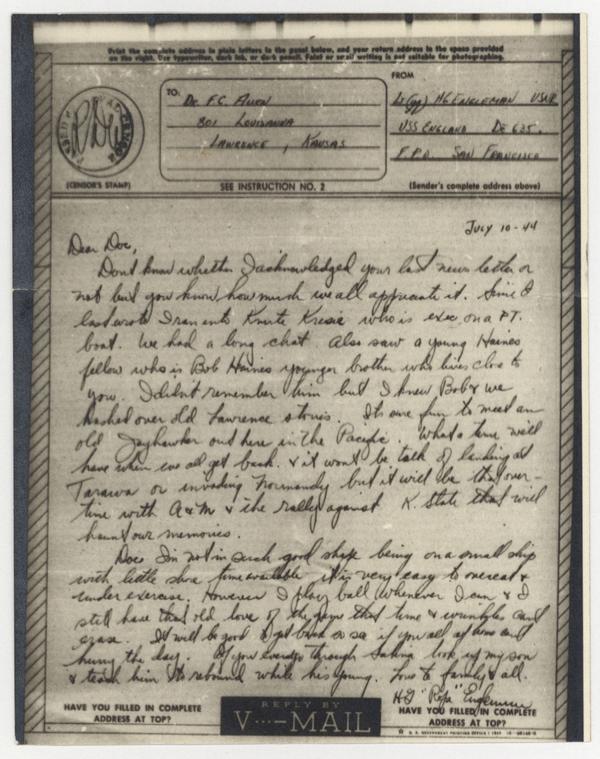 Print the complete address in plain letters in the panel below, and your return address in the space provided
on the right. Use typewriter, dark ink, or dark pencil. Faint or small writing is not suitable for photographing.
FROM
TO:
Dr. F.C. Allen
801 Louisianna
Lawrence, Kansas
Lt(jg) HG Engleman USNR
USS England DE 635.
F.P.O. San Francisco
PASSED BY NAVAL CENSOR
(CENSOR'S STAMP)
SEE INSTRUCTION NO. 2
(Sender's complete address above)
July 10-44
Dear Doc,
Dont know whether I acknowledged your last news letter or
not but you know how much we all appriciate it. Since I
last wrote I ran into Knute Kresie who is exec on a PT.
boat. We had a long chat. Also saw a young Haines
fellow who is Bob Haines younger brother who lives close to
you. I didn't remember him but I knew Bob & we
hashed over old Lawrence stories. Its sure fun to meet an
old Jayhawker out here in the Pacific. What a time we'll
have when we all get back. & it wont be talk of landing at
Tarawa or invading Normandy but it will be that over-
time with A&M & the rally against K. State that will
haunt our memories.
Doc I'm not in such good shape being on a small ship
with little shore time available it is very easy to overeat &
under exercise. However I play ball whenever I can & I
still have that old love of the game that time & wrinkles cant
erase. It will be good to get back & see if you all at home cant
hurry the day. If you everget through Salina look up my son
& teach him to rebound while his young. Love to family & all.
HG "Rope" Engleman
HAVE YOU FILLED IN COMPLETE
ADDRESS AT TOP?
REPLY BY
V···—MAIL
HAVE YOU FILLED IN COMPLETE
ADDRESS AT TOP?
U. S. GOVERNMENT PRINTING OFFICE